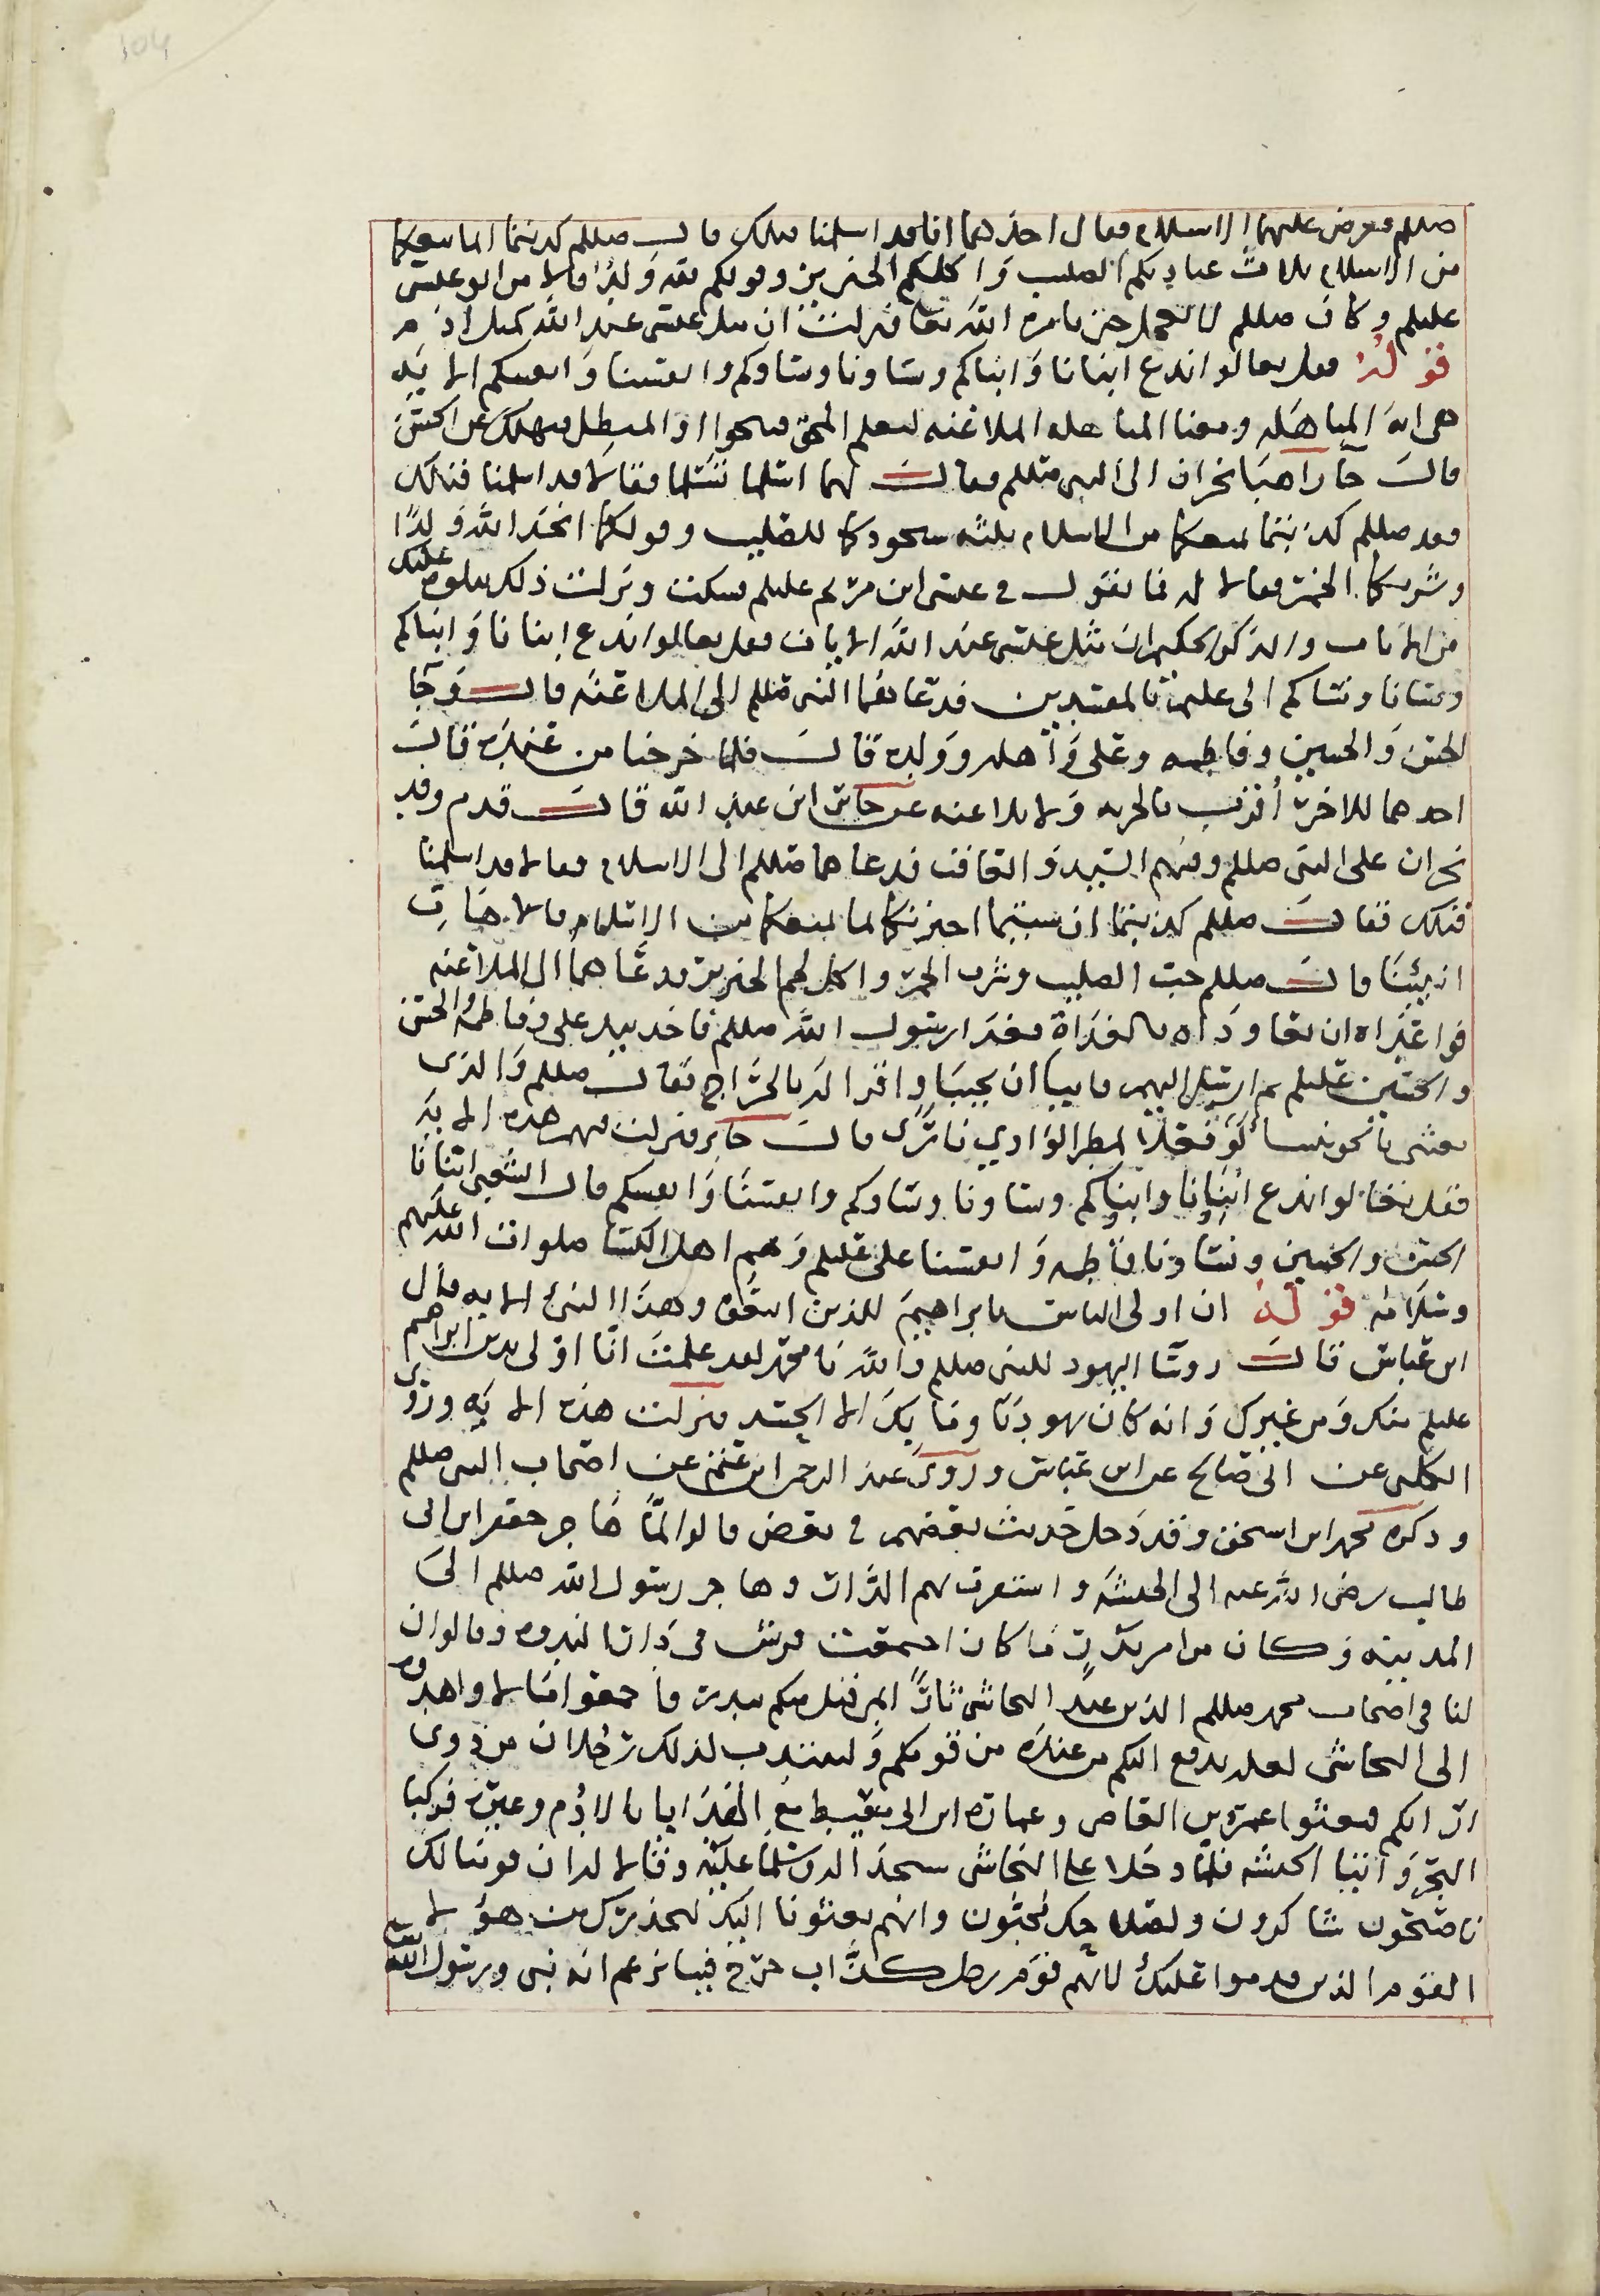 صللم فعرض عليهما الاسلام فقال احدهما انا قد اسلمنا قبلك قال صللم كذبتما انما يمنعكما
من الاسلام ثلاث عبادتكم الصليب واكلكم الخنزير وقولكم لله ولد قالا من ابو عيسى
عليلم وكان صللم لا يعجل حتى يامره الله تعالى فنزلت ان مثل عيسى عند الله كمثل ادم
قوله فقل تعالوا ندع ابنانا وابناكم ونساونا ونساوكم وانفسنا وانفسكم الايه
هي ايه المباهله ومعنا المباهله الملاعنه ليعلم المحق والمبطل فيهلك عن الحسن
قال جا راهبا نجران الى النبي صللم فقال لهما اسلما تسلما فقالا قد اسلمنا قبلك
فقد صللم كذبتما يمنعكما من الاسلام ثلثه سجودكما للصليب وقولكما اتخذ الله ولدا
وشربكما الخمر فقالا له فما تقول في عيسى ابن مريم عليلم فسكت ونزلت ذلك نتلوه عليك
من الايات والذكر الحكيم ان مثل عيسى عند الله الايات فقل تعالوا ندع ابنانا وابناكم
ونسانا ونساكم الى فدعاهما النبي صللم الى الملاعنه قال وجا
الحسن والحسين وفاطمه وعلى واهله وولده قال فلما خرجنا من عنده قال
احدهما للاخر أقرر بالجزيه ولا تلاعنه عن جابر ابن عبد الله قال قدم وفد
نجران على النبي صللم ومنهم السيد والعاقب فدعاهما صللم الى الاسلام فقالا قد اسلمنا
قبلك فقال صللم كذبتما ان شيتما اخبرتكما لما يمنعكما من الاسلام قالا هات
انبئنا قال صللم حب الصليب وشرب الخمر واكل لحم الخنزير فدعاهما الى الملاعنه
فواعداه ان يغاوداه بالغداة فغدا رسول الله صللم فاخذ بيد على وفاطمه والحسن
والحسين عليلم ثم ارسل اليهم فابيا ان يجيبا واقرا له بالخراج فقال صللم والذي
بعثني بالحق لو فعلا لمطر الوادي نارا قال جابر فنزلت فيهم هذه الايه
فقل تعالوا ندع ابنانا وابناكم ونساونا ونساوكم وانفسنا وانفسكم قال الشعبي ابنانا
الحسن والحسين ونساونا فاطمه وانفسنا على عليلم وهم اهل الكسا صلوات الله عليهم
وسلامه قوله ان اولى الناس بابراهيم للذين اتبعوه وهذا النبى الايه قال
ابن عباس قال روسا اليهود للنبي صللم والله يا محمد لقد علمت انا اولى بدين ابراهيم
عليلم منك ومن غيرك وانه كان يهوديا وما بك الا الحسد فنزلت هذه الايه وروى
الكلبي عن ابي صالح عن ابن عباس وروى عبد الرحمن ابن غنم عن اصحاب النبي صللم
وذكره محمد ابن اسحق وقد دخل حديث بعضهم في بعض قالوا لما هاجر جعفر ابن ابي
طالب رضى الله عنه الى الحبشه واستقرت بهم الدار وهاجر رسول الله صللم الى
المدينه وكان من امر بدر ما كان اجتمعت قريش في دار الندوه وقالوا ان
لنا في اصحاب محمد صللم الذين عند النجاشي ثارا بمن قتل منكم ببدر فاجمعوا مالا واهدوه
الى النجاشي لعله يدفع اليكم من عنده من قومكم ولينتدب لذلك رجلان من ذوي
ارائكم فبعثوا عمرو بن العاص وعماره ابن ابي معيط مع الهدايا بالادم وغيره فركبا
البحر واتيا الحبشه فلما دخلا على النجاشى سجدا له وسلما عليه وقالا له ان قومنا لك
ناصحون شاكرون ولصلاحك محبون وانهم بعثونا اليك لنحذرك من هؤلا
القوم الذين قدموا عليك لانهم قوم رجل كذاب خرج فينا يزعم انه نبي ورسول الله